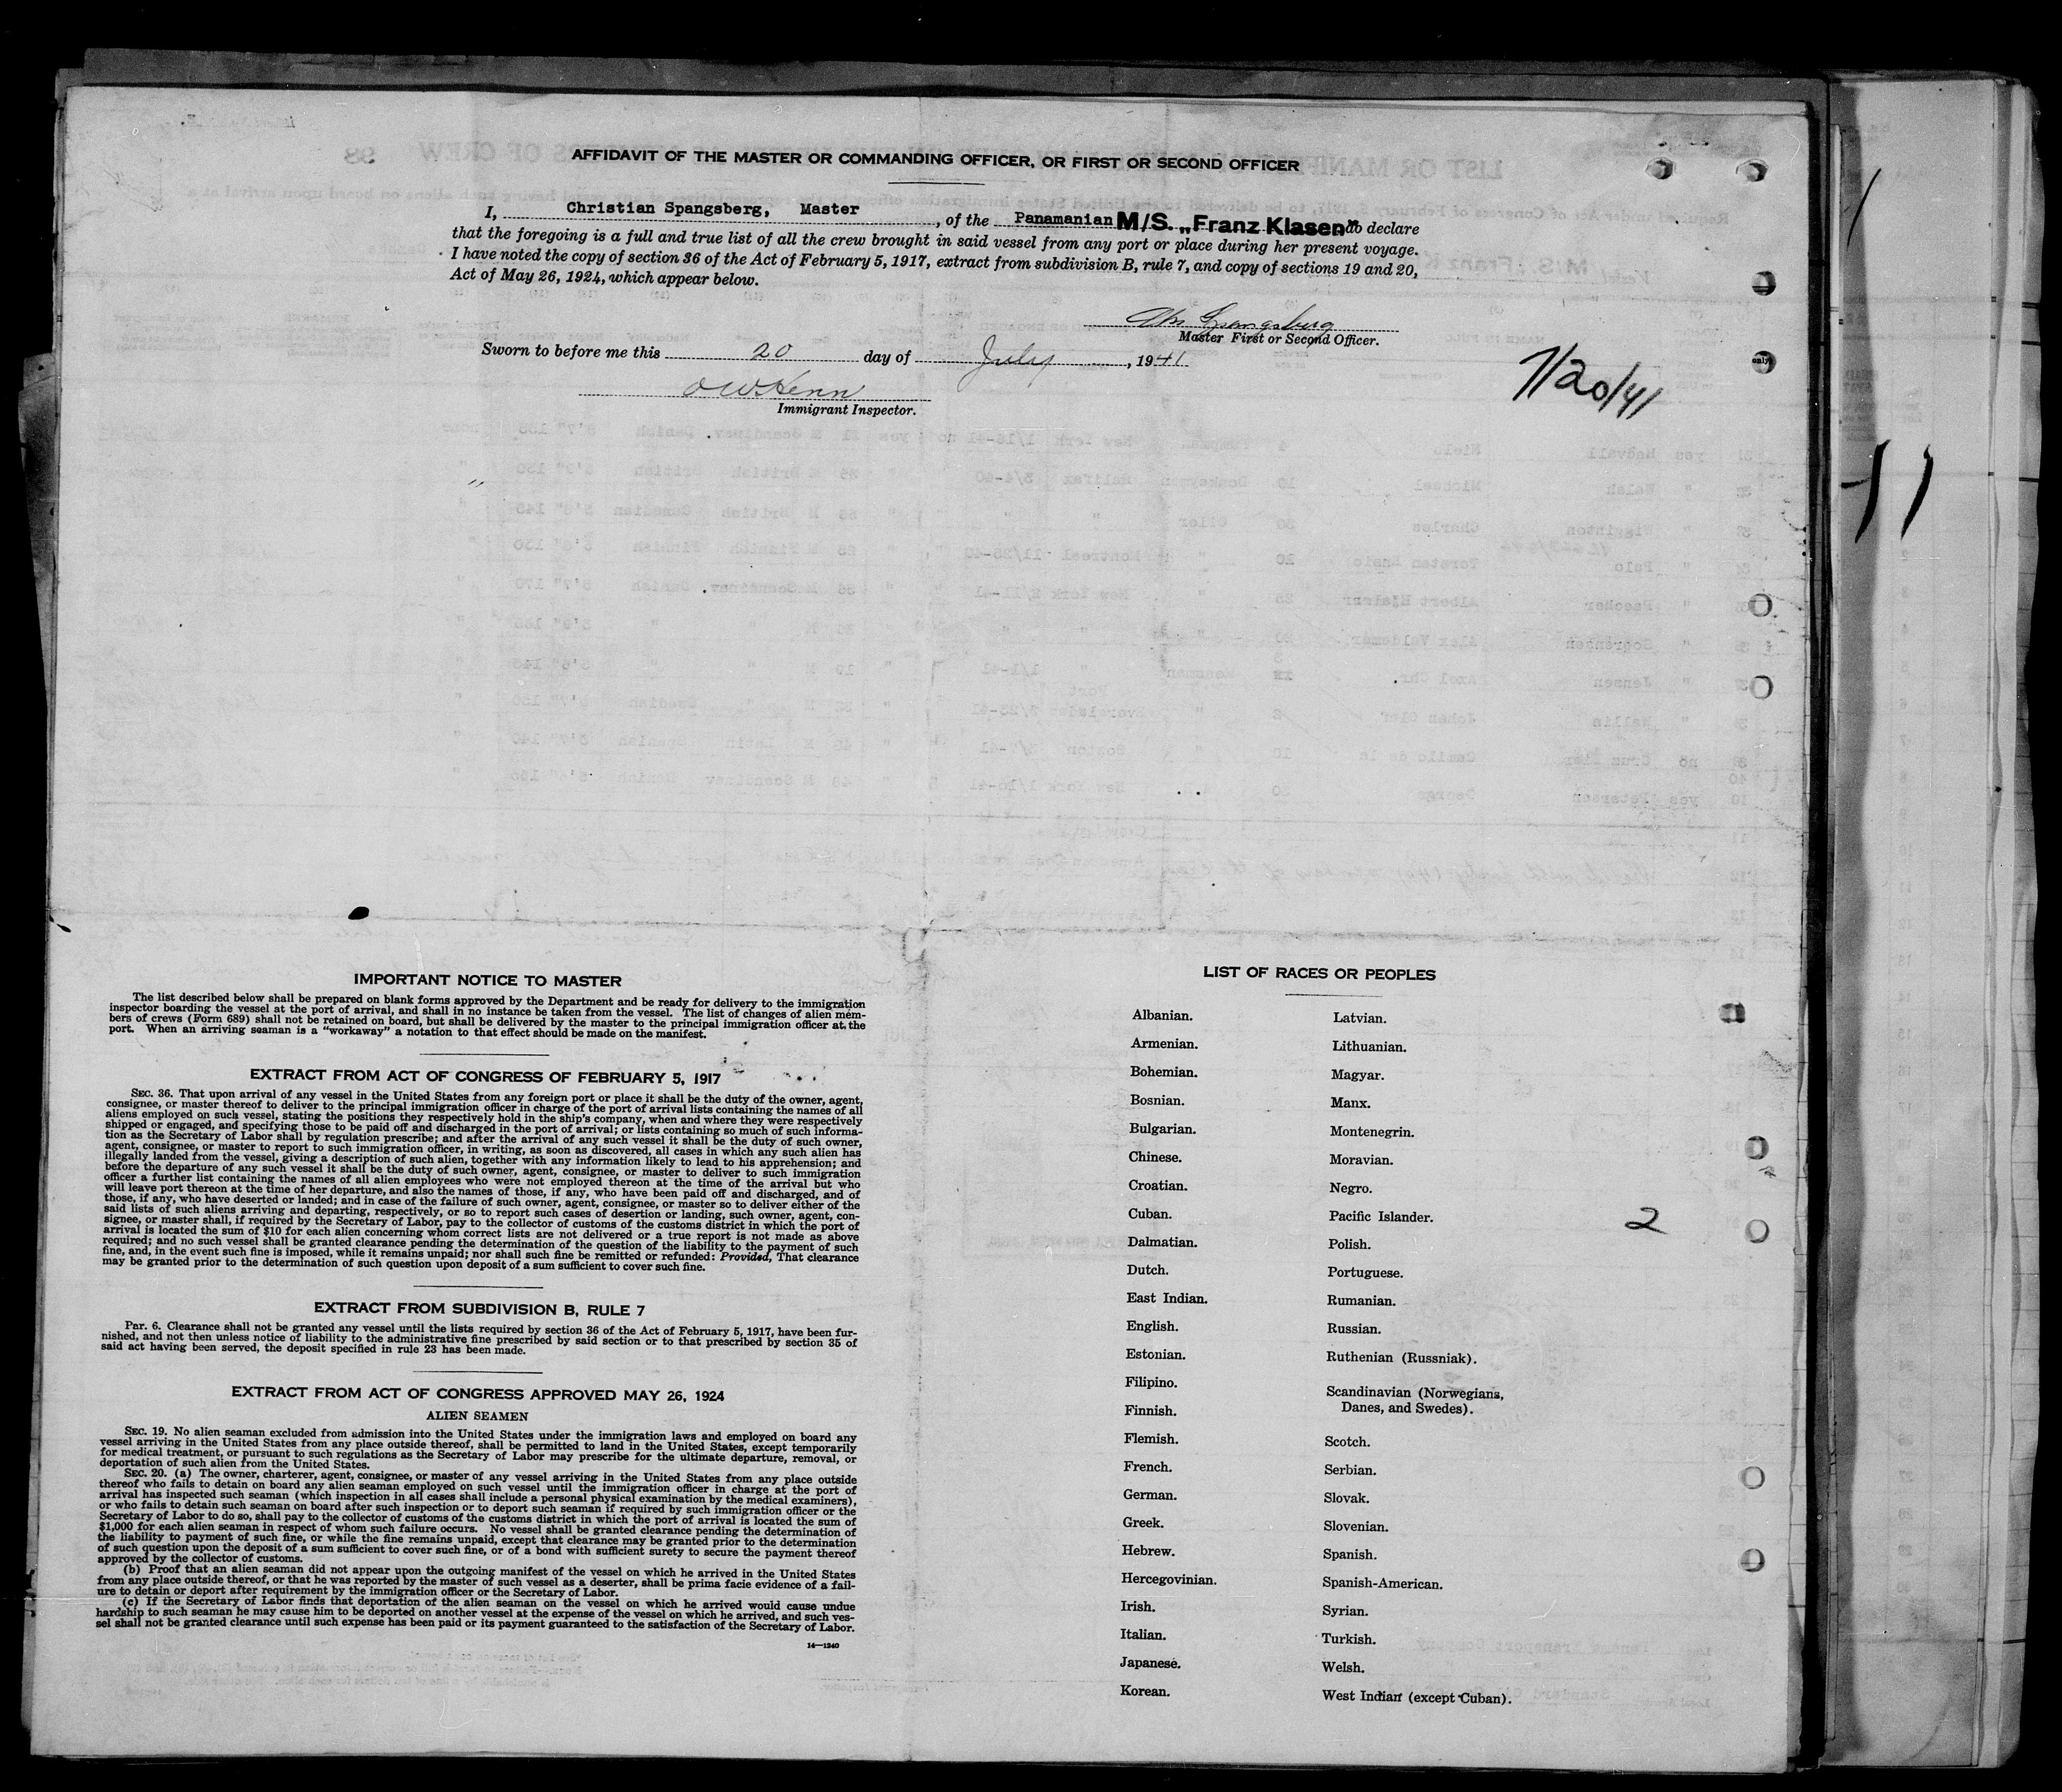 AFFIDAVIT OF THE MASTER OR COMMANDING OFFICER, OR FIRST OR SECOND OFFICER
I, Christian Spangsberg, Master, of the Panamanian M/S. „Franz Klasen" do declare
that the foregoing is a full and true list of all the crew brought in said vessel from any port or place during her present voyage.
I have noted the copy of section 36 of the Act of February 5, 1917, extract from subdivision B, rule 7, and copy of sections 19 and 20,
Act of May 26, 1924, which appear below.
Chr Spangsberg
Master First or Second Officer.
Sworn to before me this 20 day of July, 1941
7/20/41
Immigrant Inspector.
IMPORTANT NOTICE TO MASTER
The list described below shall be prepared on blank forms approved by the Department and be ready for delivery to the immigration
inspector boarding the vessel at the port of arrival, and shall in no instance be taken from the vessel. The list of changes of alien mem-
bers of crews (Form 689) shall not be retained on board, but shall be delivered by the master to the principal immigration officer at the
port. When an arriving seaman is a "workaway" a notation to that effect should be made on the manifest.
EXTRACT FROM ACT OF CONGRESS OF FEBRUARY 5, 1917
SEC. 36. That upon arrival of any vessel in the United States from any foreign port or place it shall be the duty of the owner, agent,
consignee, or master thereof to deliver to the principal immigration officer in charge of the port of arrival lists containing the names of all
aliens employed on such vessel, stating the positions they respectively hold in the ship's company, when and where they were respectively
shipped or engaged, and specifying those to be paid off and discharged in the port of arrival; or lists containing so much of such informa-
tion as the Secretary of Labor shall by regulation prescribe; and after the arrival of any such vessel it shall be the duty of such owner,
agent, consignee, or master to report to such immigration officer, in writing, as soon as discovered, all cases in which any such alien has
illegally landed from the vessel, giving a description of such alien, together with any information likely to lead to his apprehension; and
before the departure of any such vessel it shall be the duty of such owner, agent, consignee, or master to deliver to such immigration
officer a further list containing the names of all alien employees who were not employed thereon at the time of the arrival but who
will leave port thereon at the time of her departure, and also the names of those, if any, who have been paid off and discharged, and of
those, if any, who have deserted or landed; and in case of the failure of such owner, agent, consignee, or master so to deliver either of the
said lists of such aliens arriving and departing, respectively, or so to report such cases of desertion or landing, such owner, agent, con-
signee, or master shall, if required by the Secretary of Labor, pay to the collector of customs of the customs district in which the port of
arrival is located the sum of $10 for each alien concerning whom correct lists are not delivered or a true report is not made as above
required; and no such vessel shall be granted clearance pending the determination of the question of the liability to the payment of such
fine, and, in the event such fine is imposed, while it remains unpaid; nor shall such fine be remitted or refunded: Provided, That clearance
may be granted prior to the determination of such question upon deposit of a sum sufficient to cover such fine.
EXTRACT FROM SUBDIVISION B, RULE 7
PAR. 6. Clearance shall not be granted any vessel until the lists required by section 36 of the Act of February 5, 1917, have been fur-
nished, and not then unless notice of liability to the administrative fine prescribed by said section or to that prescribed by section 35 of
said act having been served, the deposit specified in rule 23 has been made.
EXTRACT FROM ACT OF CONGRESS APPROVED MAY 26, 1924
ALIEN SEAMEN
SEC. 19. No alien seaman excluded from admission into the United States under the immigration laws and employed on board any
vessel arriving in the United States from any place outside thereof, shall be permitted to land in the United States, except temporarily
for medical treatment, or pursuant to such regulations as the Secretary of Labor may prescribe for the ultimate departure, removal, or
deportation of such alien from the United States.
SEC. 20. (a) The owner, charterer, agent, consignee, or master of any vessel arriving in the United States from any place outside
thereof who fails to detain on board any alien seaman employed on such vessel until the immigration officer in charge at the port of
arrival has inspected such seaman (which inspection in all cases shall include a personal physical examination by the medical examiners),
or who fails to detain such seaman on board after such inspection or to deport such seaman if required by such immigration officer or the
Secretary of Labor to do so, shall pay to the collector of customs of the customs district in which the port of arrival is located the sum of
$1,000 for each alien seaman in respect of whom such failure occurs. No vessel shall be granted clearance pending the determination of
the liability to payment of such fine, or while the fine remains unpaid, except that clearance may be granted prior to the determination
of such question upon the deposit of a sum sufficient to cover such fine, or of a bond with sufficient surety to secure the payment thereof
approved by the collector of customs.
(b) Proof that an alien seaman did not appear upon the outgoing manifest of the vessel on which he arrived in the United States
from any place outside thereof, or that he was reported by the master of such vessel as a deserter, shall be prima facie evidence of a fail-
ure to detain or deport after requirement by the immigration officer or the Secretary of Labor.
(c) If the Secretary of Labor finds that deportation of the alien seaman on the vessel on which he arrived would cause undue
hardship to such seaman he may cause him to be deported on another vessel at the expense of the vessel on which he arrived, and such ves-
sel shall not be granted clearance until such expense has been paid or its payment guaranteed to the satisfaction of the Secretary of Labor.
14—1240
LIST OF RACES OR PEOPLES
Albanian.
Armenian.
Bohemian.
Bosnian.
Bulgarian.
Chinese.
Croatian.
Cuban.
Dalmatian.
Dutch.
East Indian.
English.
Estonian.
Filipino.
Finnish.
Flemish.
French.
German.
Greek.
Hebrew.
Hercegovinian.
Irish.
Italian.
Japanese.
Korean.
Latvian.
Lithuanian.
Magyar.
Manx.
Montenegrin.
Moravian.
Negro.
Pacific Islander.
Polish.
Portuguese.
Rumanian.
Russian.
Ruthenian (Russniak).
Scandinavian (Norwegians,
Danes, and Swedes).
Scotch.
Serbian.
Slovak.
Slovenian.
Spanish.
Spanish-American.
Syrian.
Turkish.
Welsh.
West Indian (except Cuban).
2